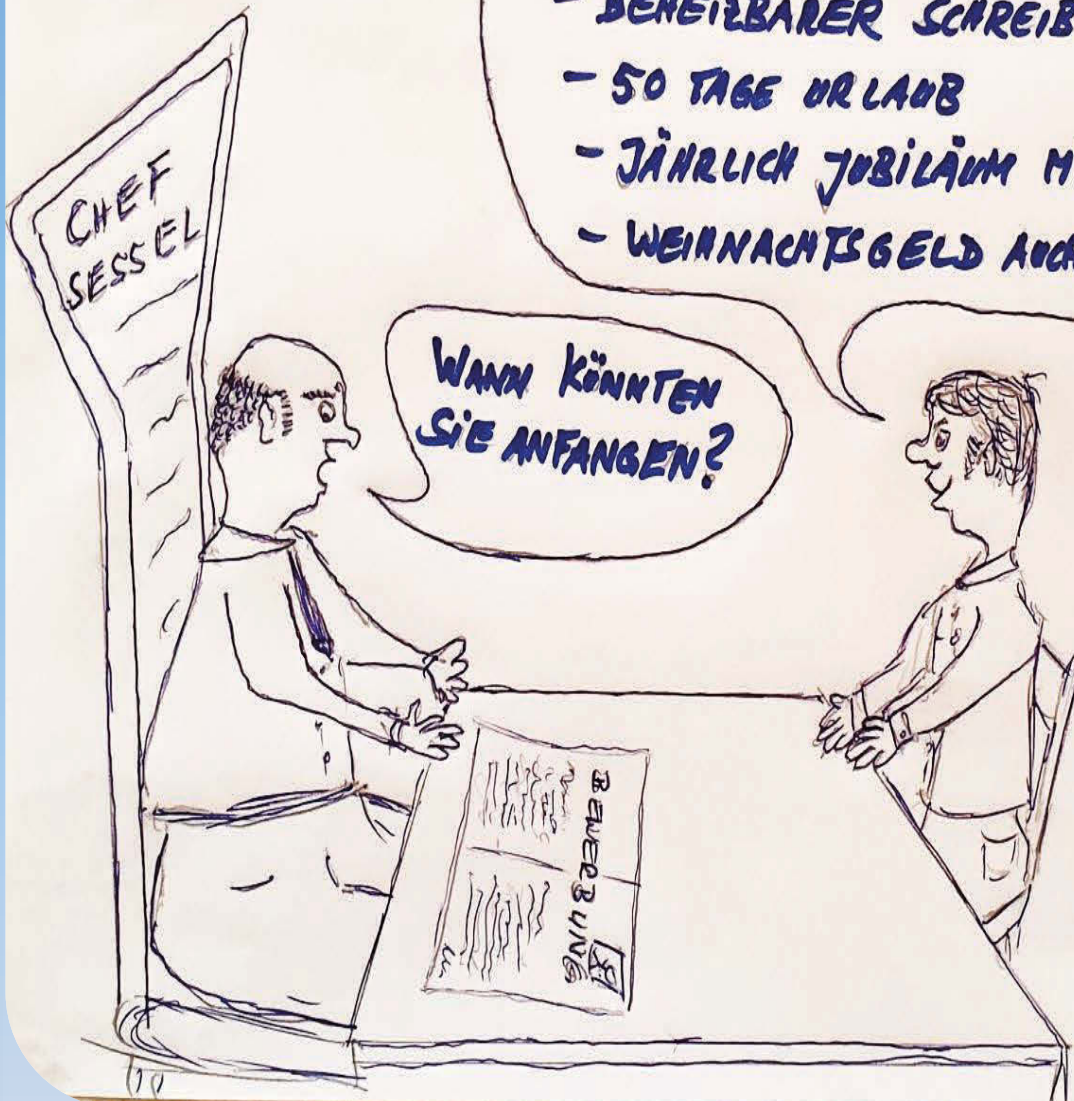 - BEHEIZBARER SCHREIB
- 50 TAGE URLAUB
- JÄHRLICH JUBILÄUM M
- WEIHNACHTSGELD AUCH
CHEF
SESSEL
WANN KÖNNTEN
SIE ANFANGEN?
BEWERBUNG